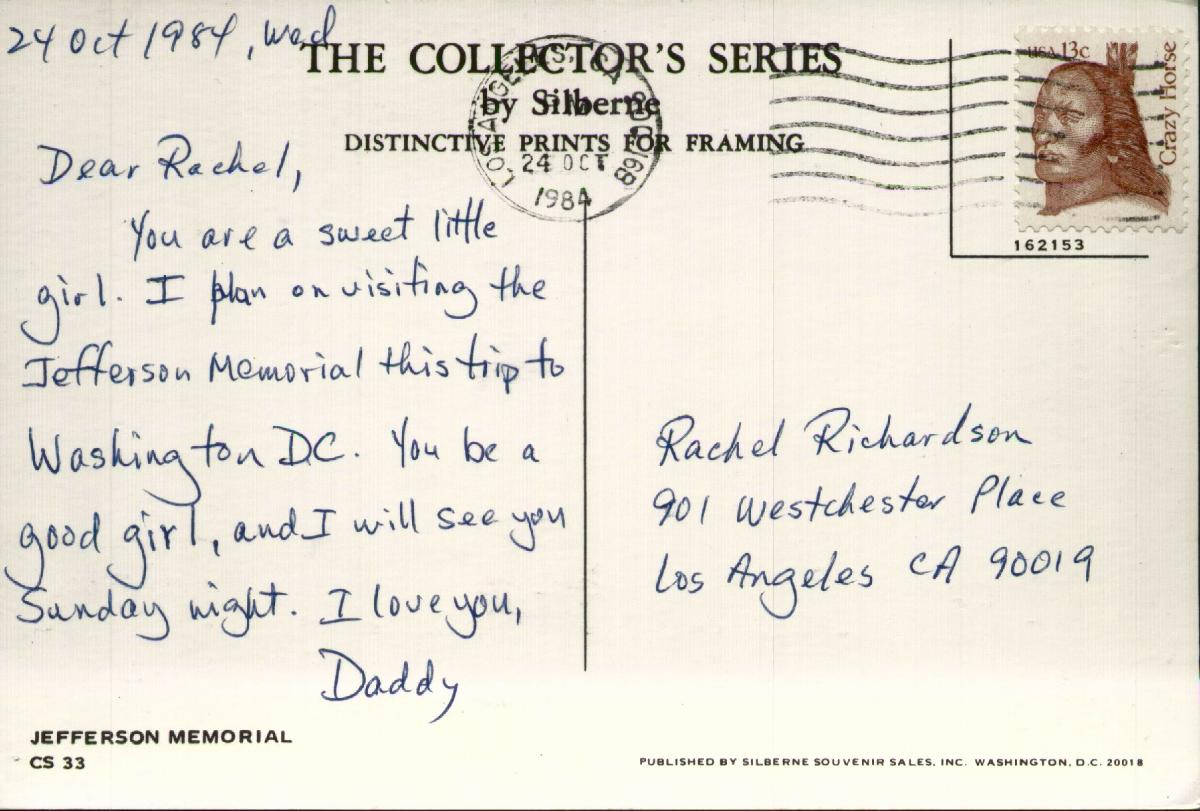 24 Oct 1984, Wed
THE COLLECTOR'S SERIES
by Silberne
DISTINCTIVE PRINTS FOR FRAMING
LOS ANGELES, CA
PM
24 OCT
1984
USA 13c
Crazy Horse
162153
Dear Rachel,
You are a sweet little
girl. I plan on visiting the
Jefferson Memorial this trip to
Washington DC. You be a
good girl, and I will see you
Sunday night. I love you,
Daddy
Rachel Richardson
901 Westchester Place
Los Angeles CA 90019
JEFFERSON MEMORIAL
CS 33
PUBLISHED BY SILBERNE SOUVENIR SALES, INC. WASHINGTON, D.C. 20018